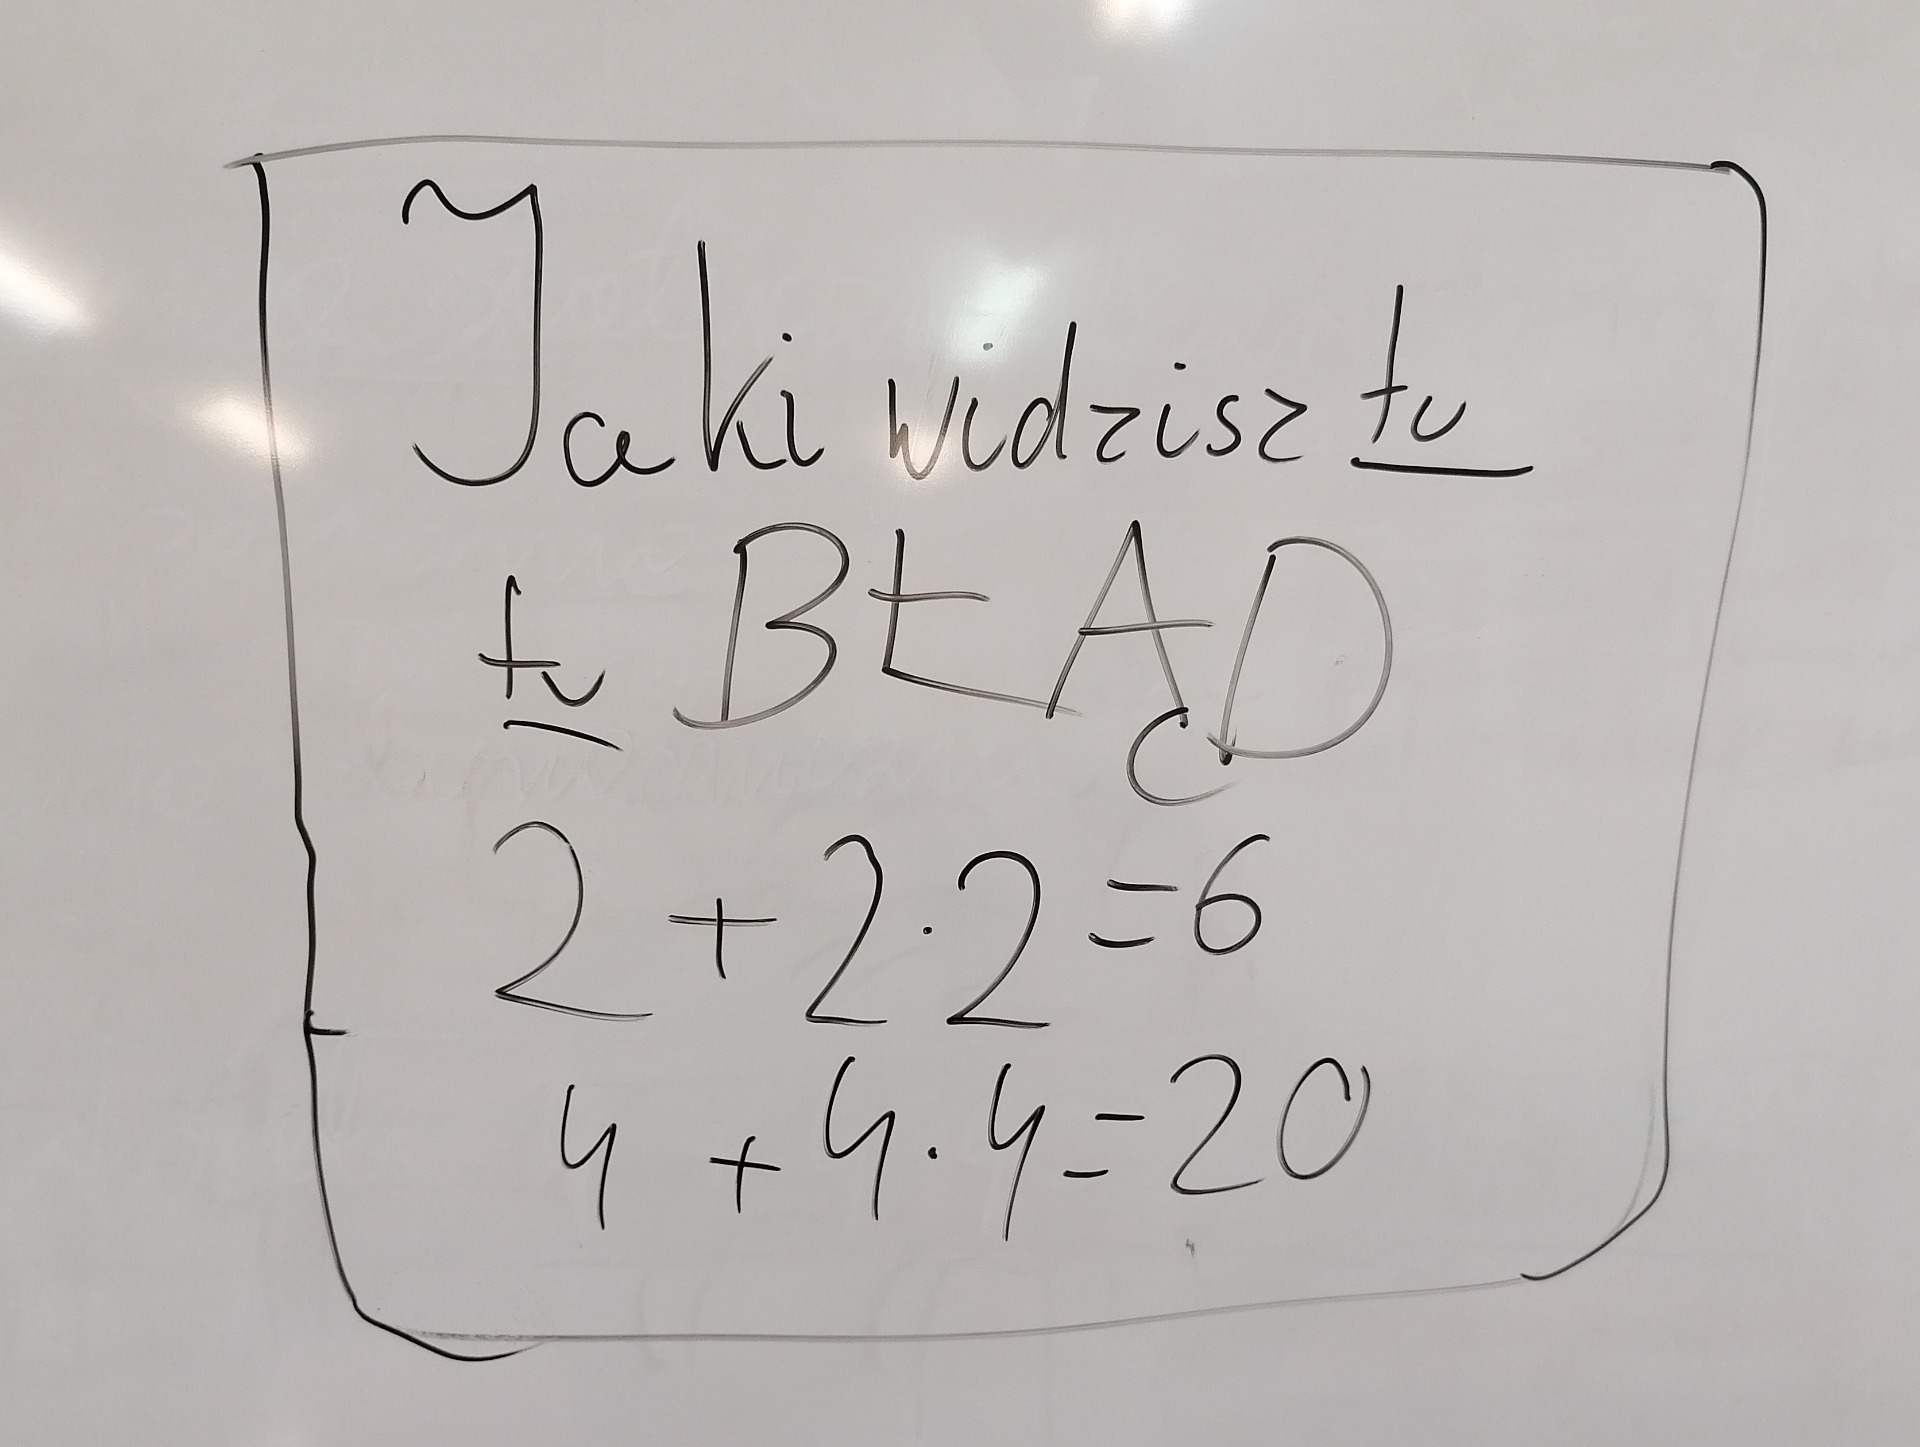 Jaki widzisz tu
tu BŁĄD
2 + 2 · 2 = 6
4 + 4 · 4 = 20